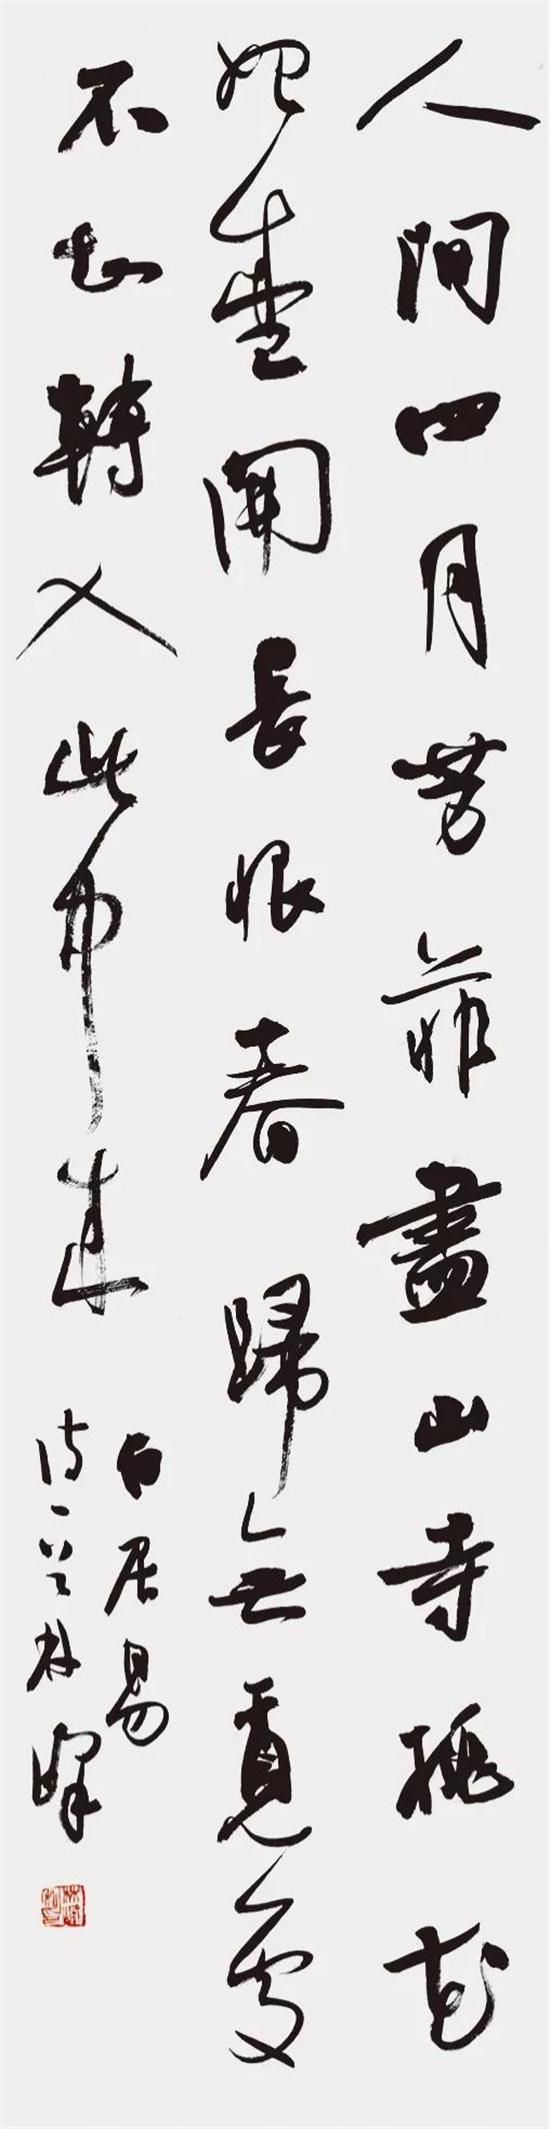 人間四月芳菲盡山寺桃花
始盛開長恨春歸無覓處
不知轉入此中來
白居易
詩一首林峰